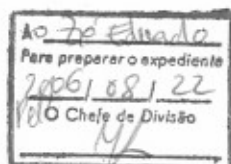 Ao Zé Eduardo
Para preparar o expediente
2006/08/22
Pel'O Chefe de Divisão